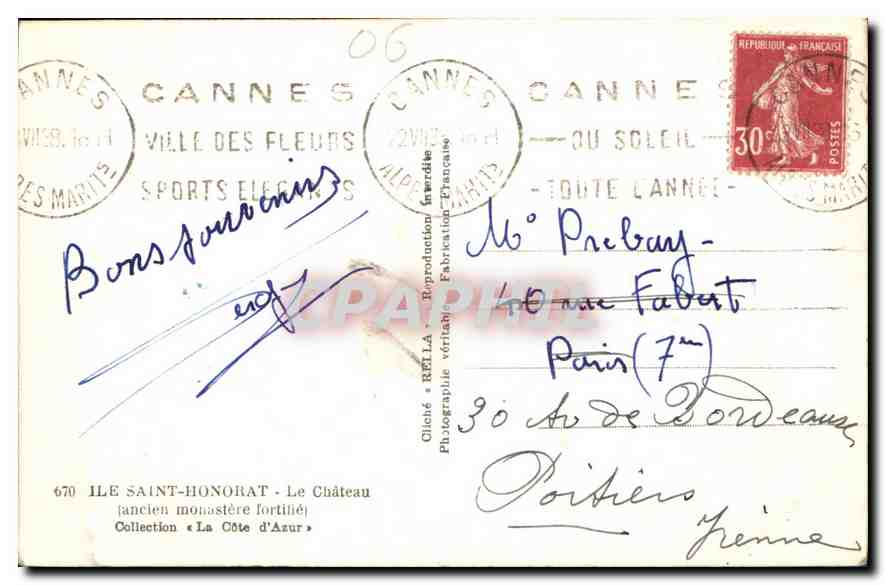 06
CANNES
VILLE DES FLEURS
SPORTS ELEGANTS
CANNES
ALPES MARITS
CANNES
22 VII 38. 18 H
ALPES MARITS
CANNES
DU SOLEIL
- TOUTE L'ANNEE -
REPUBLIQUE FRANÇAISE
30 c
POSTES
Bons souvenirs
Cliché « RELLA » - Reproduction interdite
Photographie véritable - Fabrication Française
CPAPHIL
Mr Prebay -
40 rue Fabert
Paris (7em)
30 Av de Bordeaux
Poitiers
Vienne
670 ILE SAINT-HONORAT - Le Château
(ancien monastère fortifié)
Collection « La Côte d'Azur »